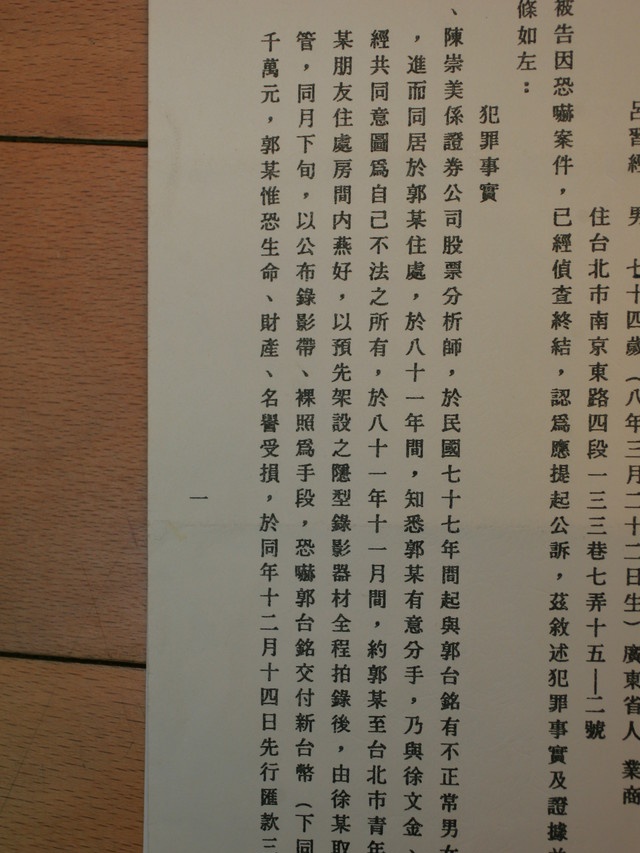 呂習經　男　七十四歲（八年三月二十二日生）廣東省人　業商
住台北市南京東路四段一三三巷七弄十五—二號
被告因恐嚇案件，已經偵查終結，認爲應提起公訴，茲敘述犯罪事實及證據並
條如左：
犯罪事實
、陳崇美係證券公司股票分析師，於民國七十七年間起與郭台銘有不正常男女
，進而同居於郭某住處，於八十一年間，知悉郭某有意分手，乃與徐文金、
經共同意圖爲自己不法之所有，於八十一年十一月間，約郭某至台北市青年
某朋友住處房間內燕好，以預先架設之隱型錄影器材全程拍錄後，由徐某取
管，同月下旬，以公布錄影帶、裸照爲手段，恐嚇郭台銘交付新台幣（下同
千萬元，郭某惟恐生命、財產、名譽受損，於同年十二月十四日先行匯款三
一